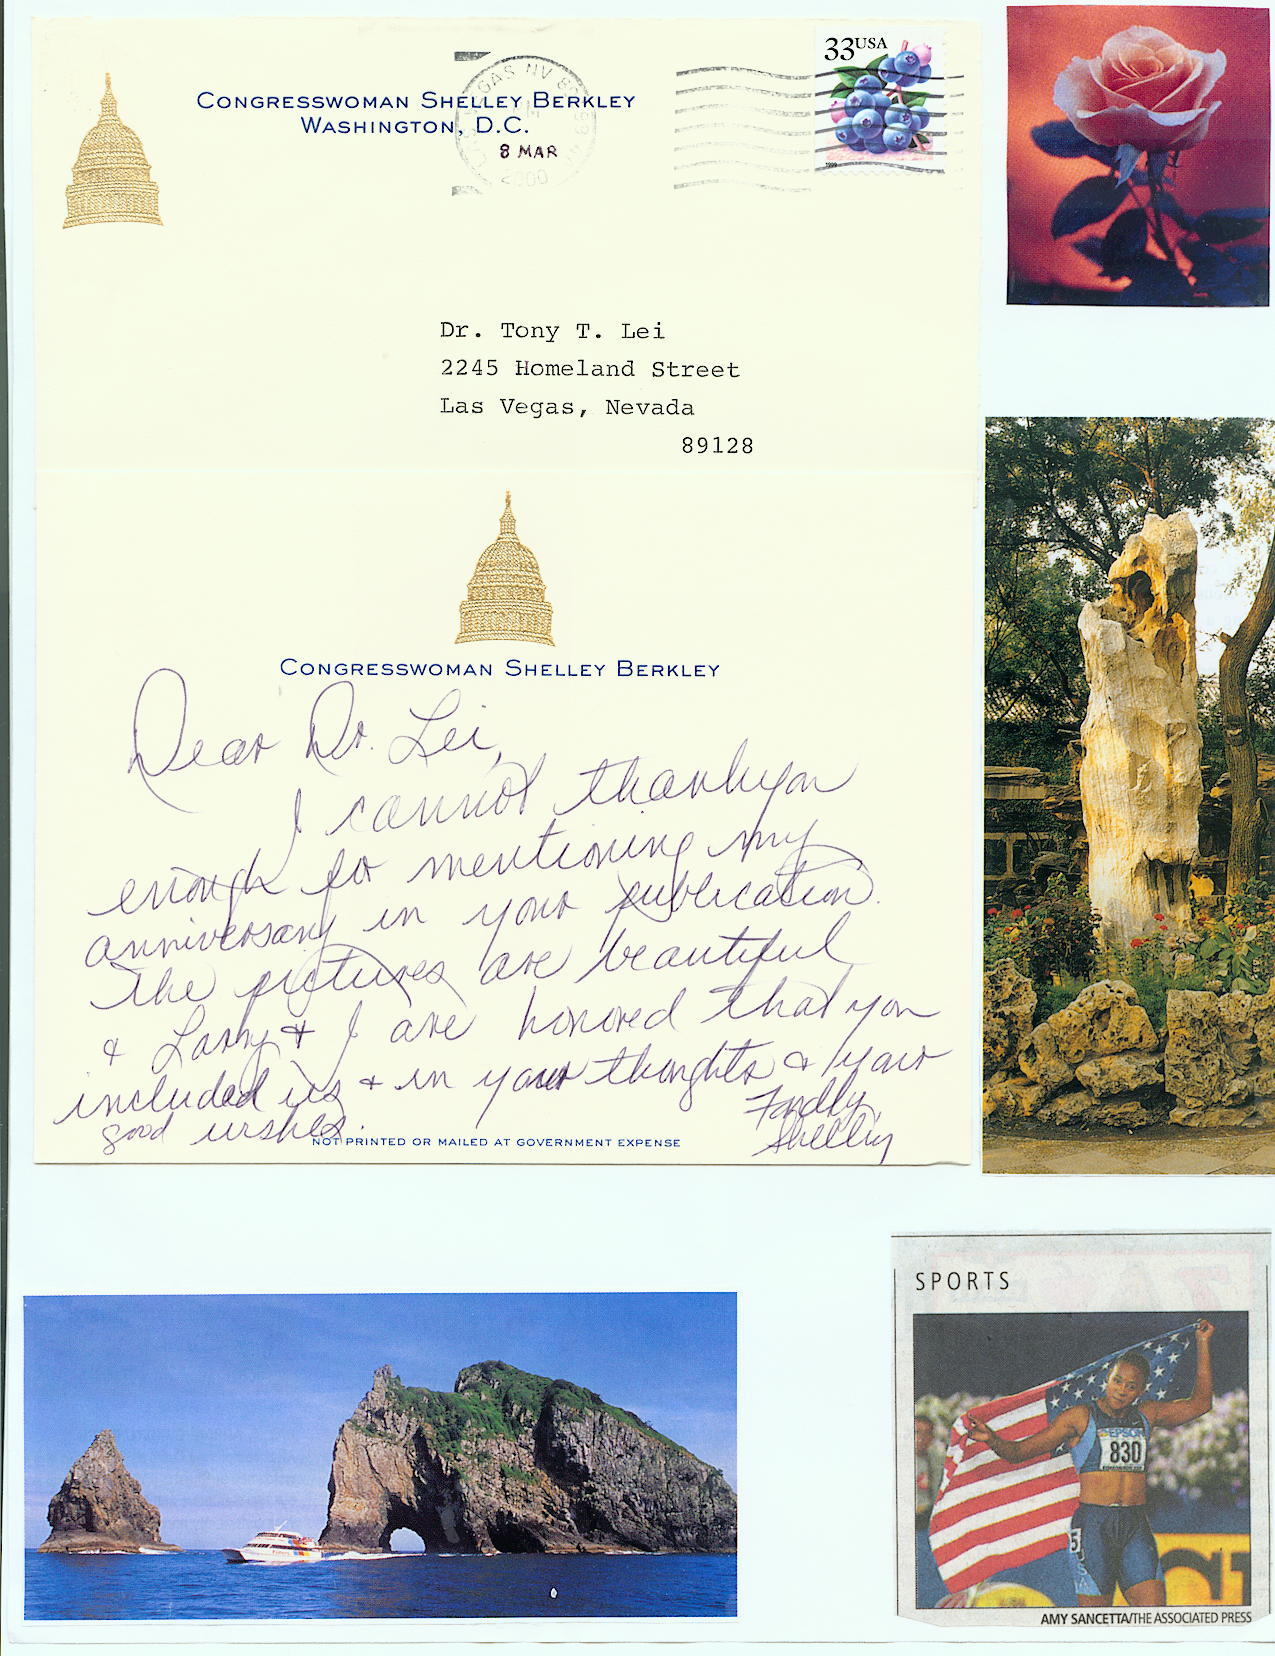 CONGRESSWOMAN SHELLEY BERKLEY
WASHINGTON, D.C.
8 MAR
2000
33USA
1999
Dr. Tony T. Lei
2245 Homeland Street
Las Vegas, Nevada
89128
CONGRESSWOMAN SHELLEY BERKLEY
Dear Dr. Lei,
I cannot thank you
enough for mentioning my
anniversary in your publication.
The pictures are beautiful
& Larry & I are honored that you
included us & in your thoughts & your
good wishes.
Fondly,
Shelley
NOT PRINTED OR MAILED AT GOVERNMENT EXPENSE
SPORTS
EPSON
830
AMY SANCETTA/THE ASSOCIATED PRESS